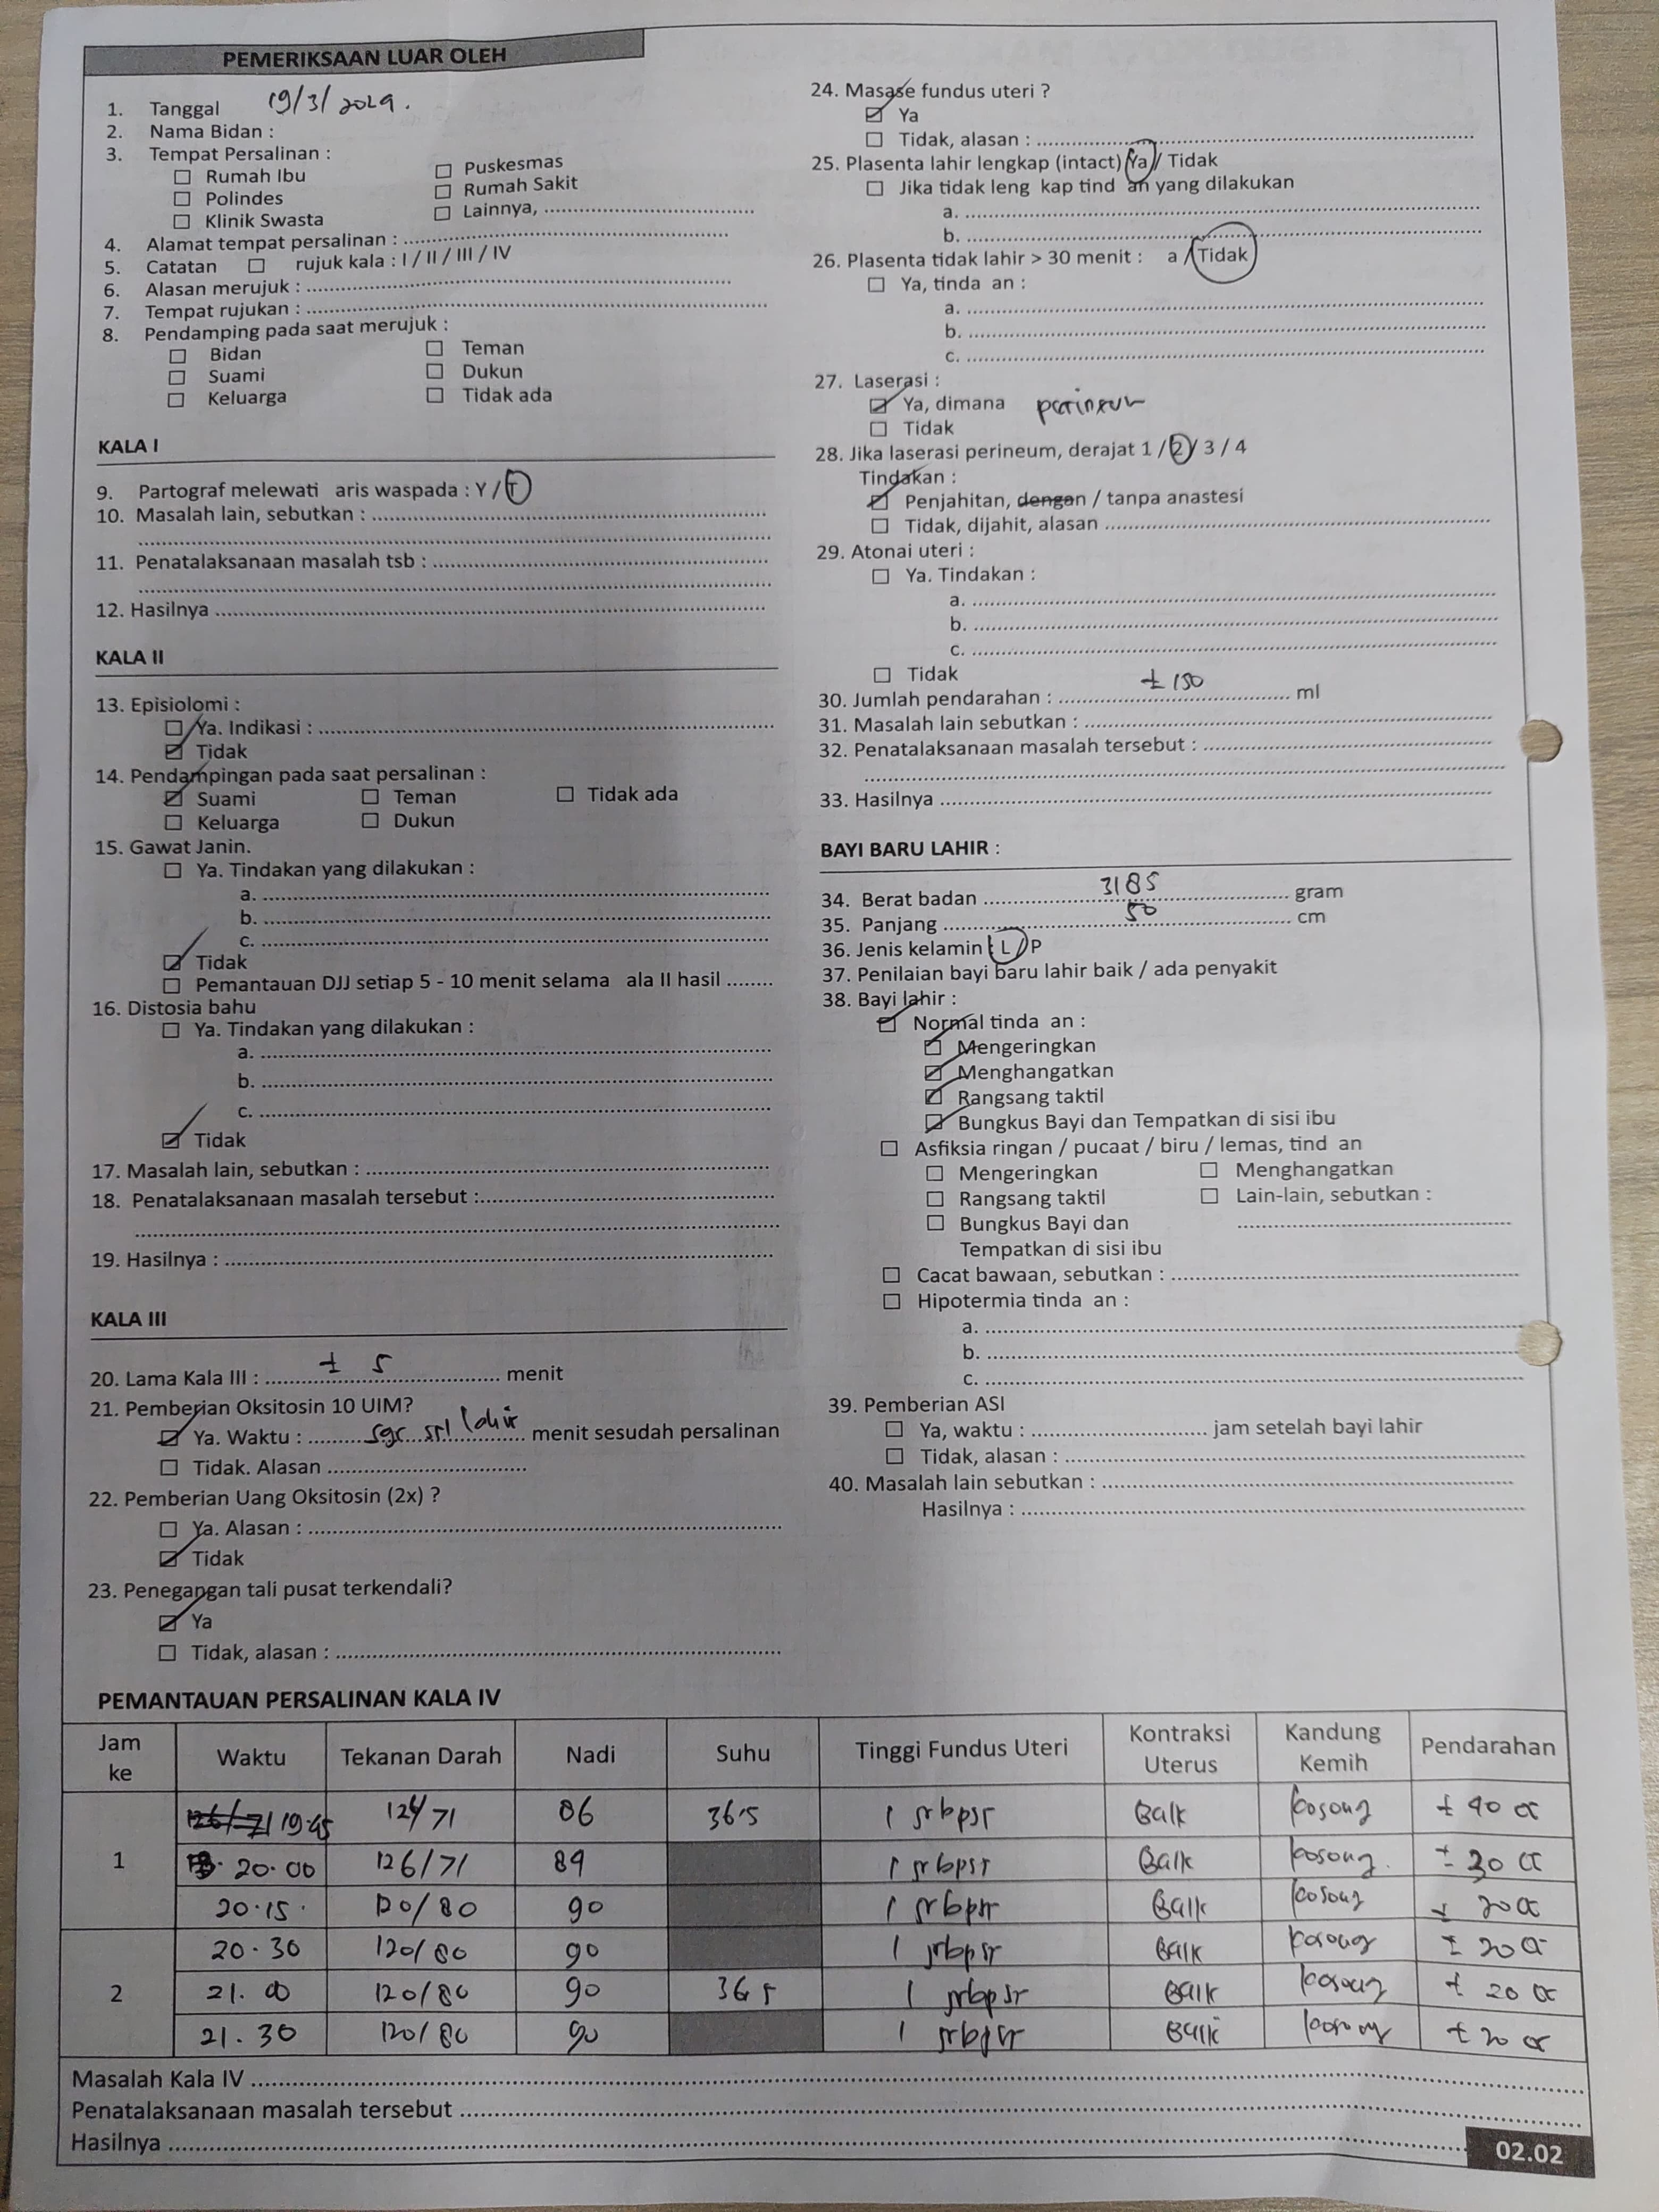 PEMERIKSAAN LUAR OLEH
1. Tanggal 19/3/2024.
2. Nama Bidan :
3. Tempat Persalinan :
☐ Rumah Ibu ☐ Puskesmas
☐ Polindes ☐ Rumah Sakit
☐ Klinik Swasta ☐ Lainnya, ........
4. Alamat tempat persalinan : ........
5. Catatan ☐ rujuk kala : I / II / III / IV
6. Alasan merujuk : ........
7. Tempat rujukan : ........
8. Pendamping pada saat merujuk :
☐ Bidan ☐ Teman
☐ Suami ☐ Dukun
☐ Keluarga ☐ Tidak ada
KALA I
9. Partograf melewati aris waspada : Y / T
10. Masalah lain, sebutkan : ........
11. Penatalaksanaan masalah tsb : ........
12. Hasilnya ........
KALA II
13. Episiolomi :
☐ Ya. Indikasi : ........
☑ Tidak
14. Pendampingan pada saat persalinan :
☑ Suami ☐ Teman ☐ Tidak ada
☐ Keluarga ☐ Dukun
15. Gawat Janin.
☐ Ya. Tindakan yang dilakukan :
a. ........
b. ........
c. ........
☑ Tidak
☐ Pemantauan DJJ setiap 5 - 10 menit selama ala II hasil ........
16. Distosia bahu
☐ Ya. Tindakan yang dilakukan :
a. ........
b. ........
c. ........
☑ Tidak
17. Masalah lain, sebutkan : ........
18. Penatalaksanaan masalah tersebut :........
19. Hasilnya : ........
KALA III
20. Lama Kala III : ± 5 menit
21. Pemberian Oksitosin 10 UIM?
☑ Ya. Waktu : sgr stl lahir menit sesudah persalinan
☐ Tidak. Alasan ........
22. Pemberian Uang Oksitosin (2x) ?
☐ Ya. Alasan : ........
☑ Tidak
23. Penegangan tali pusat terkendali?
☑ Ya
☐ Tidak, alasan : ........
24. Masase fundus uteri ?
☑ Ya
☐ Tidak, alasan : ........
25. Plasenta lahir lengkap (intact) Ya / Tidak
☐ Jika tidak leng kap tind an yang dilakukan
a. ........
b. ........
26. Plasenta tidak lahir > 30 menit : a / Tidak
☐ Ya, tinda an :
a. ........
b. ........
c. ........
27. Laserasi :
☑ Ya, dimana perineum
☐ Tidak
28. Jika laserasi perineum, derajat 1 / 2 / 3 / 4
Tindakan :
☑ Penjahitan, dengan / tanpa anastesi
☐ Tidak, dijahit, alasan ........
29. Atonai uteri :
☐ Ya. Tindakan :
a. ........
b. ........
c. ........
☐ Tidak
30. Jumlah pendarahan : ± 150 ml
31. Masalah lain sebutkan : ........
32. Penatalaksanaan masalah tersebut : ........
33. Hasilnya ........
BAYI BARU LAHIR :
34. Berat badan 3185 gram
35. Panjang 50 cm
36. Jenis kelamin : L / P
37. Penilaian bayi baru lahir baik / ada penyakit
38. Bayi lahir :
☑ Normal tinda an :
☑ Mengeringkan
☑ Menghangatkan
☑ Rangsang taktil
☑ Bungkus Bayi dan Tempatkan di sisi ibu
☐ Asfiksia ringan / pucaat / biru / lemas, tind an
☐ Mengeringkan ☐ Menghangatkan
☐ Rangsang taktil ☐ Lain-lain, sebutkan :
☐ Bungkus Bayi dan ........
Tempatkan di sisi ibu
☐ Cacat bawaan, sebutkan : ........
☐ Hipotermia tinda an :
a. ........
b. ........
c. ........
39. Pemberian ASI
☐ Ya, waktu : ........ jam setelah bayi lahir
☐ Tidak, alasan : ........
40. Masalah lain sebutkan : ........
Hasilnya : ........
PEMANTAUAN PERSALINAN KALA IV
Jam ke Waktu Tekanan Darah Nadi Suhu Tinggi Fundus Uteri Kontraksi Uterus Kandung Kemih Pendarahan
1 126/71 19.45 124/71 86 36.5 1 jrbpst Baik kosong ± 40 cc
20.00 126/71 89 1 jrbpst Baik kosong. ± 30 cc
20.15. 120/80 90 1 jrbpst Baik kosong ± 20 cc
2 20.30 120/80 90 1 jrbpst Baik kosong ± 20 cc
21.00 120/80 90 36 5 1 jrbpst Baik kosong ± 20 cc
21.30 120/80 90 1 jrbpst Baik kosong ± 20 cc
Masalah Kala IV ........
Penatalaksanaan masalah tersebut ........
Hasilnya ........
02.02